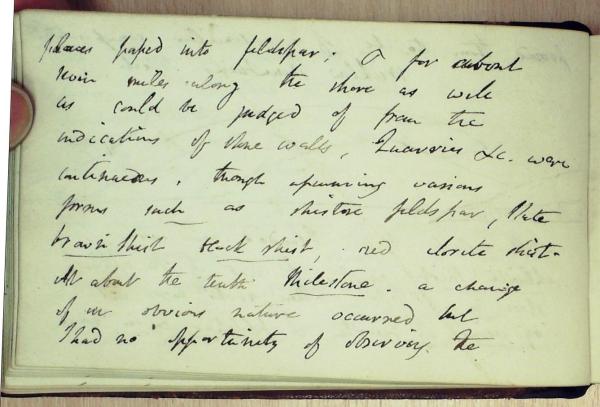 places passed into feldspar; & for about
seven miles along the shore as well
as could be judged of from the
indications of stone walls, Quarries &c. were
continuous, though assuming various
forms such as shistose feldspar, Slate
brown shist black shist, red clorite shist.
At about the tenth Milestone. a change
of an obvious nature occurred but
I had no opportunity of observing. The